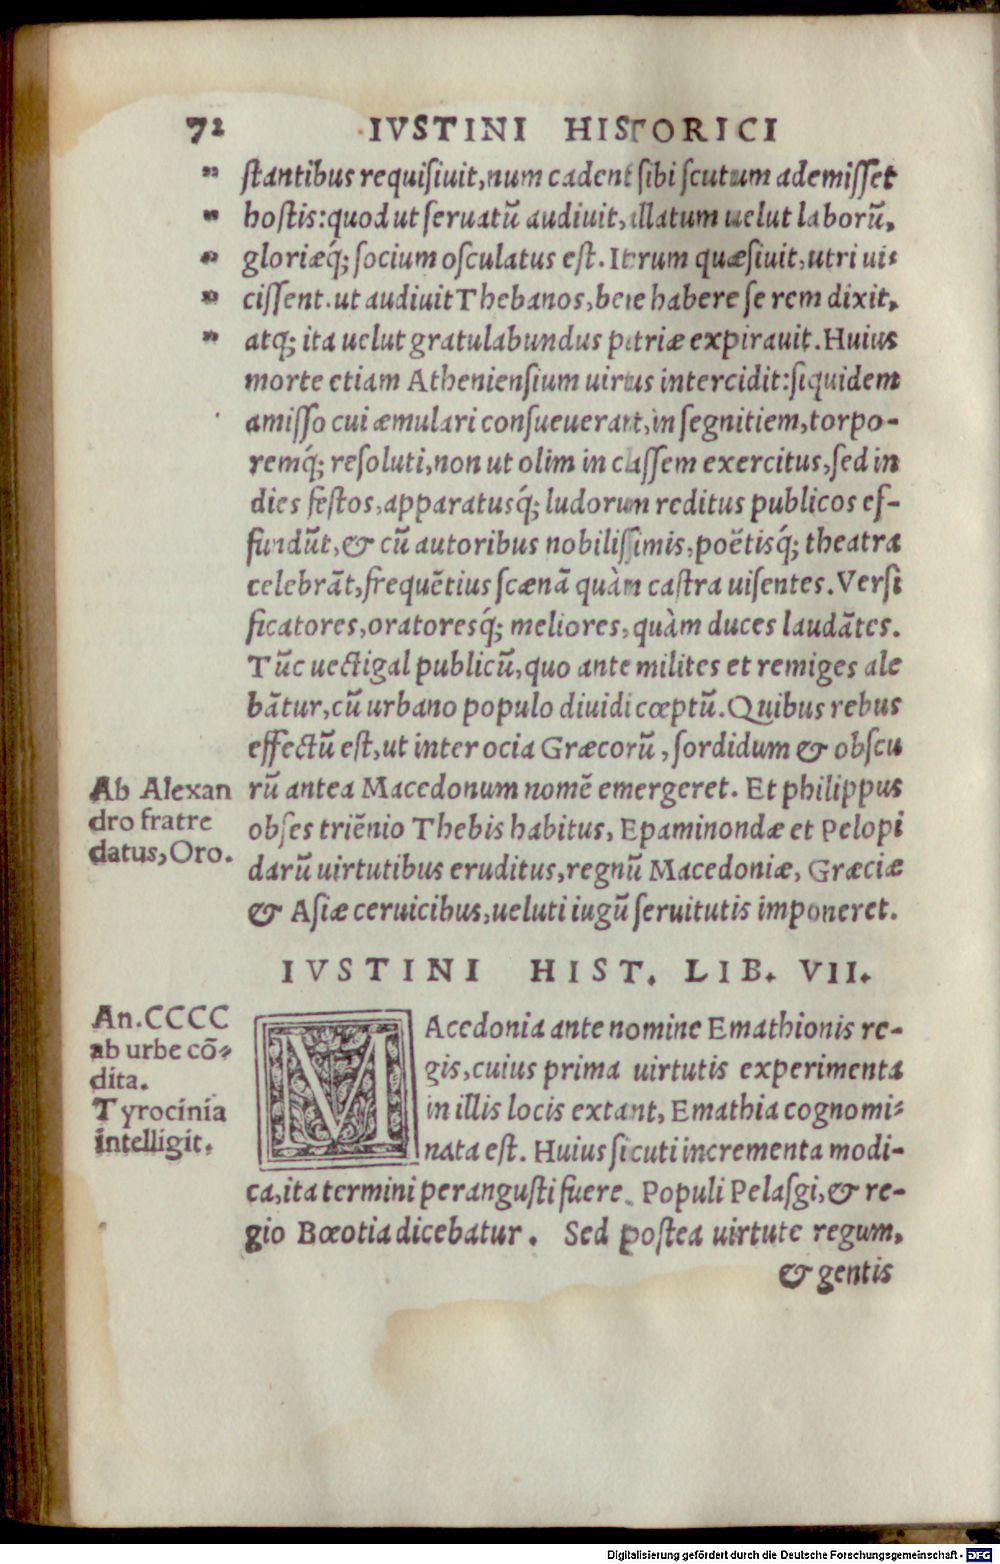 72 IVSTINI HISTORICI
" ſtantibus requiſiuit, num cadenti ſibi ſcutum ademiſſet
" hoſtis: quod ut ſeruatũ audiuit, allatum uelut laborũ,
" gloriæq́; ſocium oſculatus eſt. Iterum quæſiuit, utri uis
" ciſſent. ut audiuit Thebanos, bene habere ſe rem dixit,
" atq; ita uelut gratulabundus patriæ expirauit. Huius
morte etiam Athenienſium uirtus intercidit: ſiquidem
amiſſo cui æmulari conſueuerant, in ſegnitiem, torpo-
remq́; reſoluti, non ut olim in claſſem exercitus, ſed in
dies feſtos, apparatusq́; ludorum reditus publicos ef-
fundũt, & cũ autoribus nobiliſſimis, poëtisq́; theatra
celebrãt, frequẽtius ſcænã quàm caſtra uiſentes. Verſi
ficatores, oratoresq́; meliores, quàm duces laudãtes.
Tũc uectigal publicũ, quo ante milites et remiges ale
bãtur, cũ urbano populo diuidi cœptũ. Quibus rebus
effectũ eſt, ut inter ocia Græcorũ, ſordidum & obſcu
Ab Alexan
dro fratre
datus, Oro.
rũ antea Macedonum nomẽ emergeret. Et philippus
obſes triẽnio Thebis habitus, Epaminondæ et Pelopi
darũ uirtutibus eruditus, regnũ Macedoniæ, Græciæ
& Aſiæ ceruicibus, ueluti iugũ ſeruitutis imponeret.
IVSTINI HIST. LIB. VII.
An. CCCC
ab urbe cõ-
dita.
Tyrocinia
intelligit.
MAcedonia ante nomine Emathionis re-
gis, cuius prima uirtutis experimenta
in illis locis extant, Emathia cognomi-
nata eſt. Huius ſicuti incrementa modi-
ca, ita termini perangusti fuere. Populi Pelaſgi, & re-
gio Bœotia dicebatur. Sed poſtea uirtute regum,
& gentis
Digitalisierung gefördert durch die Deutsche Forschungsgemeinschaft - DFG